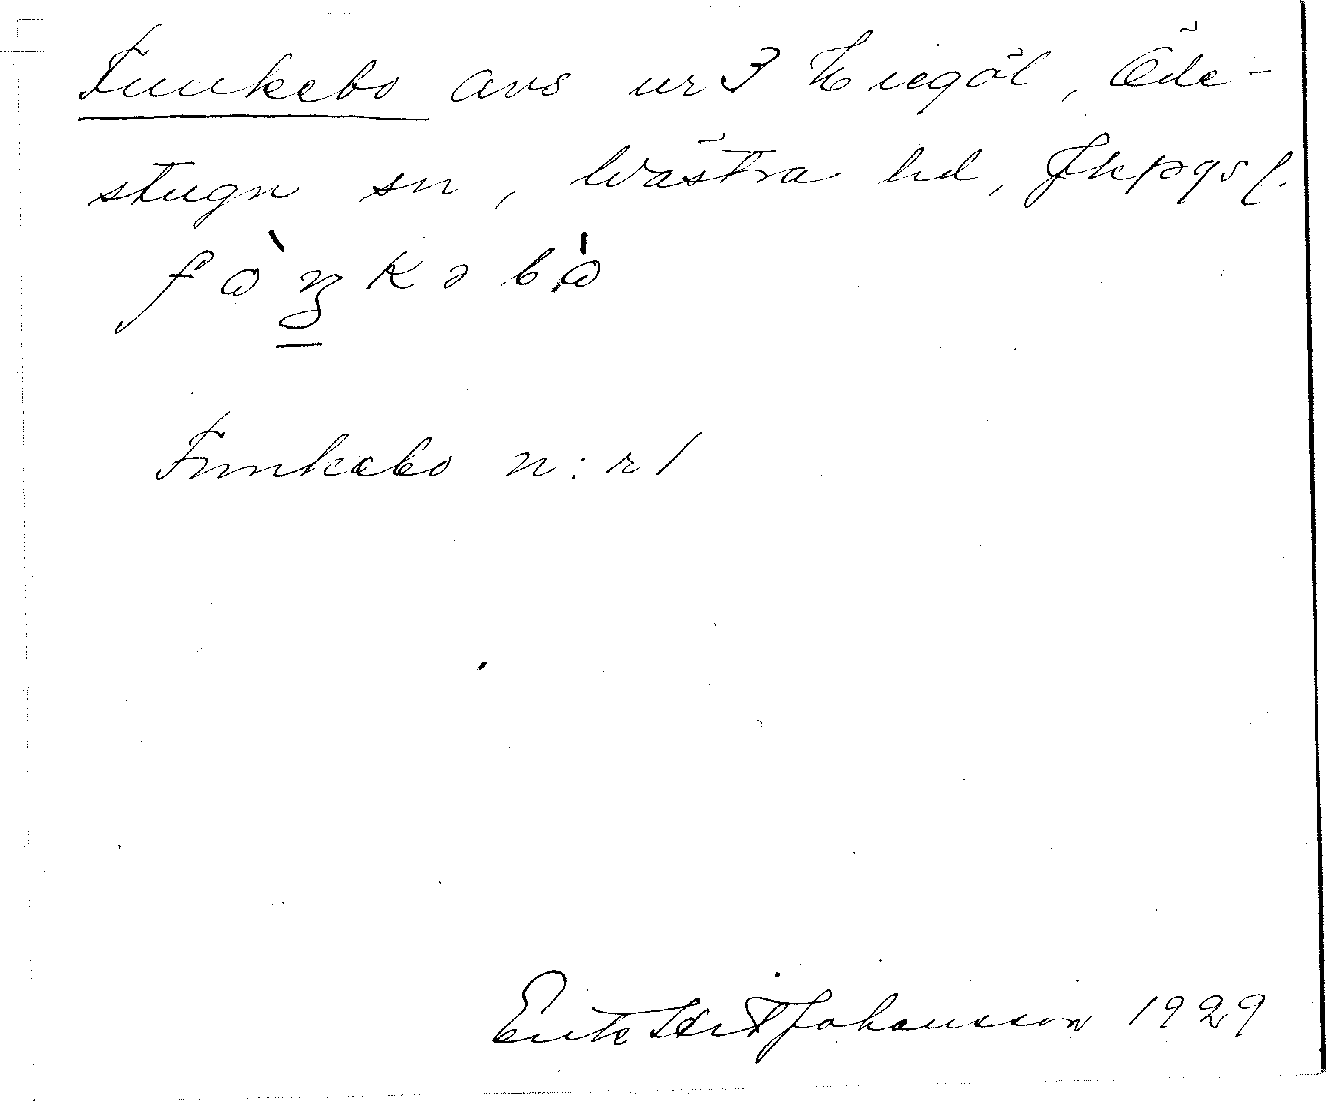 Funkebo avs nr 3 Hiegöl, Öde-
stugu sn, Västra hd, Jkpgs l.
fàŋkəbò
Funkebo n:r 1
Johansson 1929